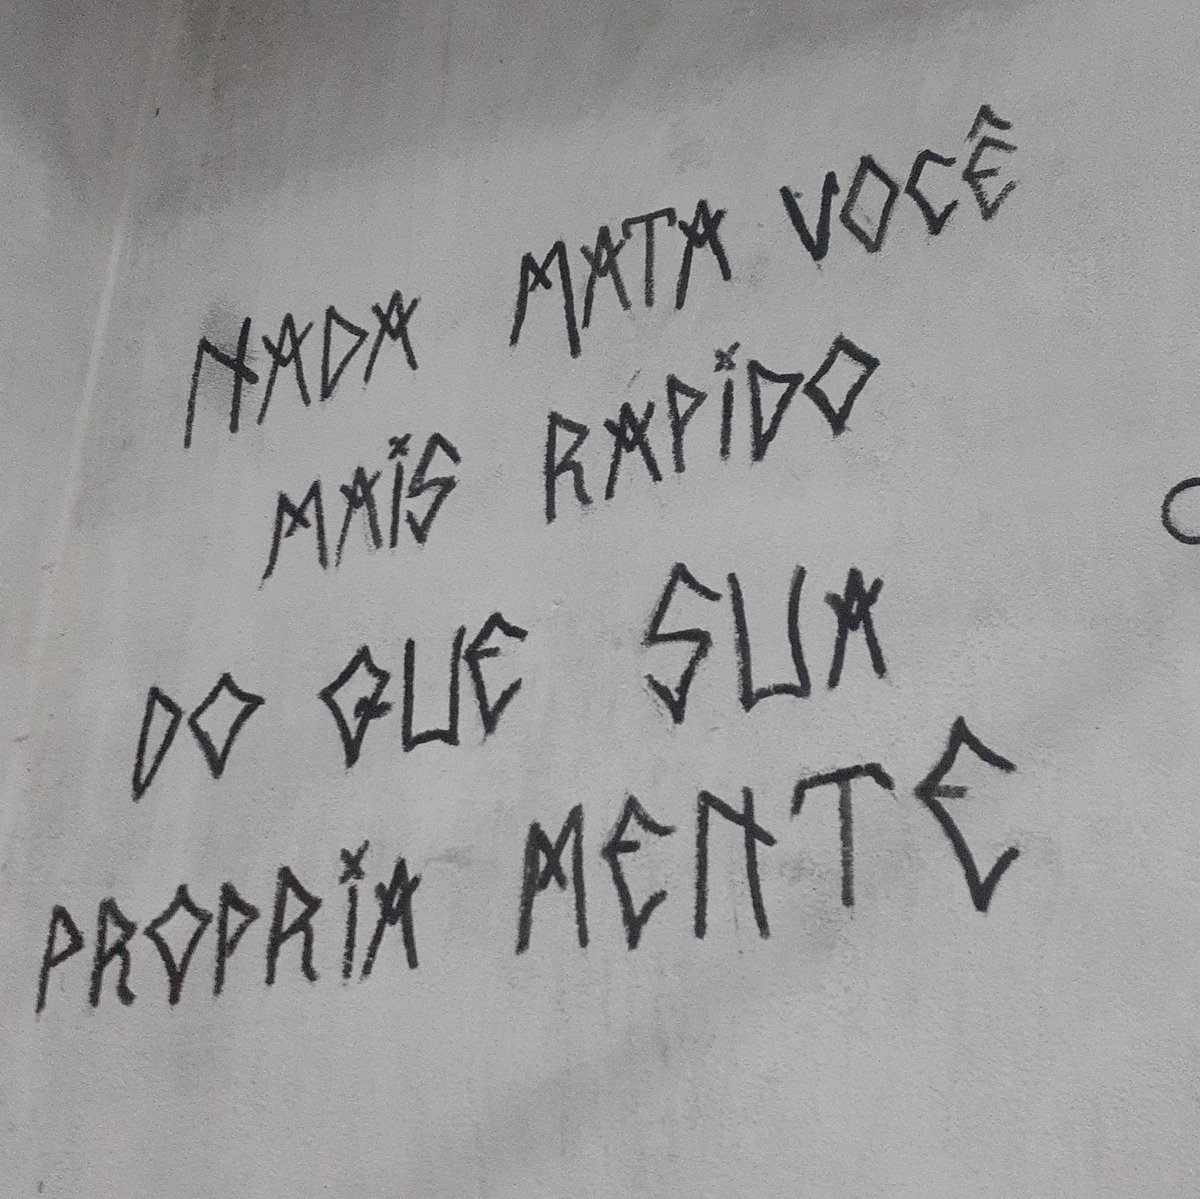 NADA MATA VOCÊ
MAiS RAPiDO
DO QUE SUA
PROPRiA MENTE